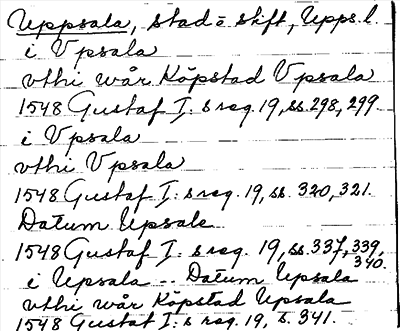 Uppsala, stad o stift, Upps. l.
i Vpsala
vthi wår Köpstad Vpsala
1548 Gustaf I:s reg. 19, ss. 298, 299.
i Vpsala
vthi Vpsala
1548 Gustaf I:s reg. 19, ss. 320, 321.
Datum Upsale
1548 Gustaf I:s reg. 19, ss. 337, 339, 340.
i Upsala -- Datum Upsala
vthi wår Köpstad Upsala
1548 Gustaf I:s reg. 19, s. 341.